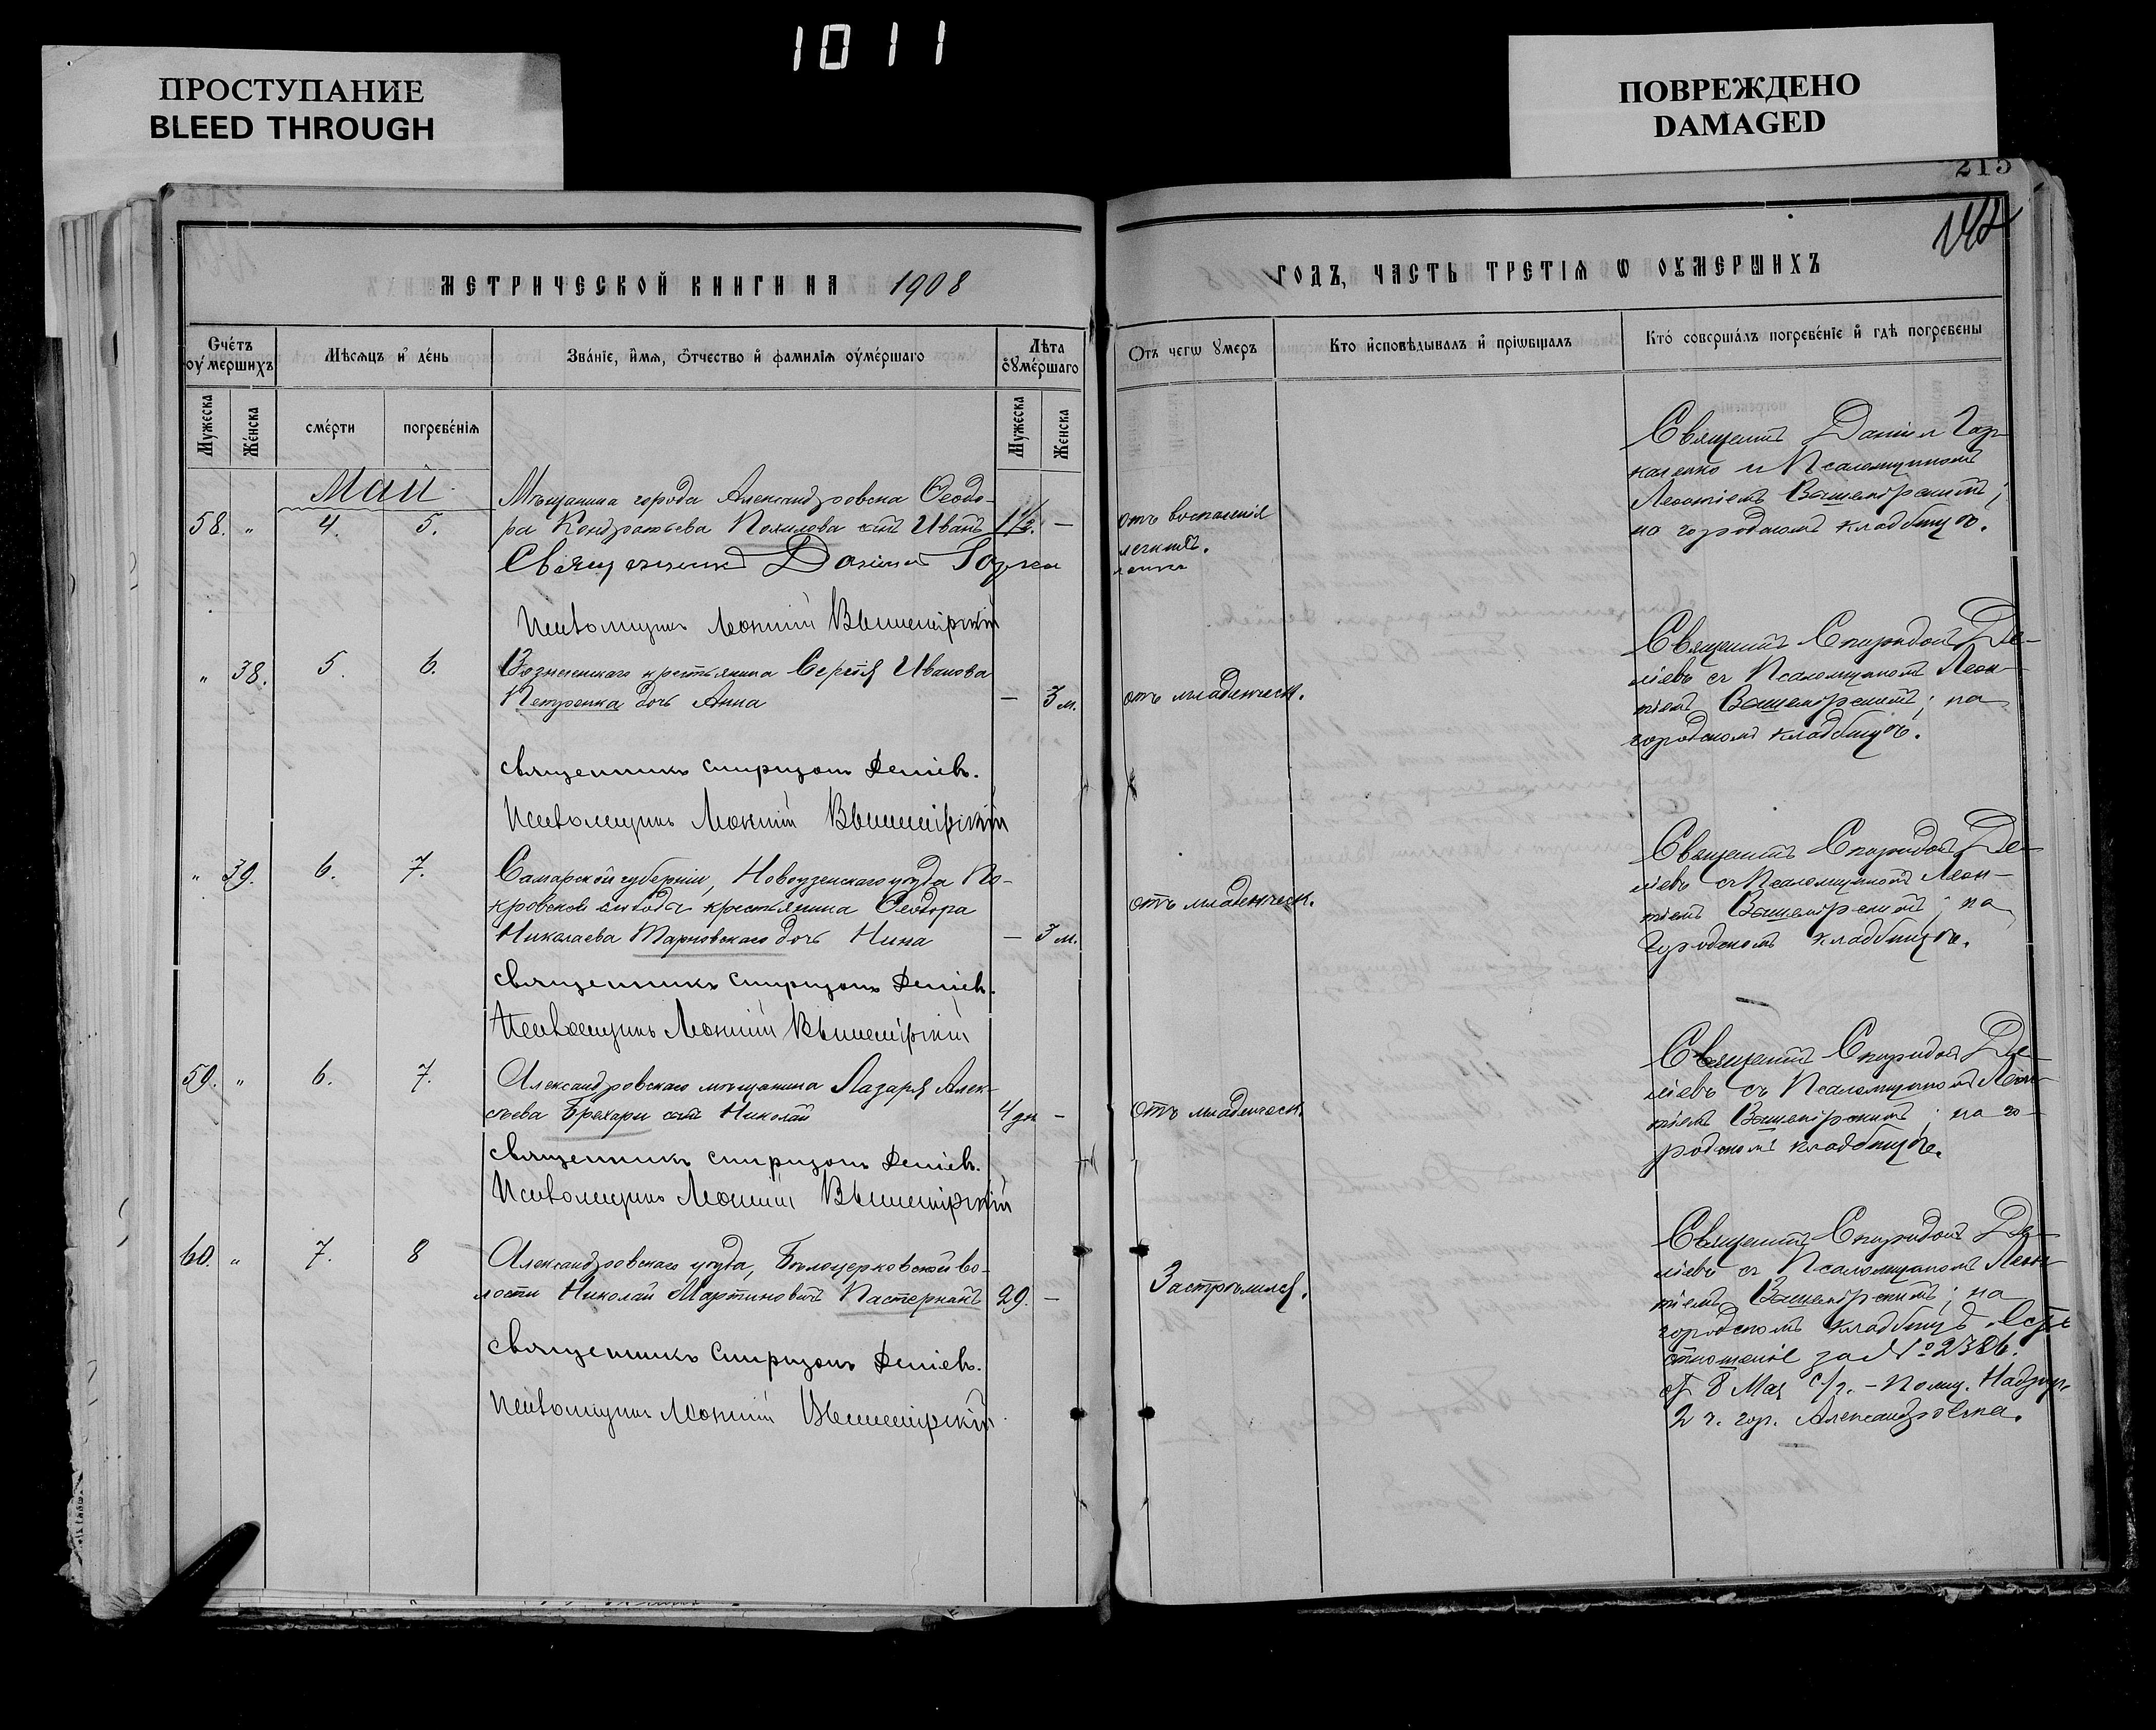 1011
ПРОСТУПАНИЕ
BLEED THROUGH
ПОВРЕЖДЕНО
DAMAGED
215
142
МЕТРИЧЕСКОЙ КНИГИ НА 1908
ГОДЪ, ЧАСТЬ ТРЕТІѦ Ѡ ОУМЕРШИХЪ
Счетъ оумершихъ
Мѣсѧцъ и день
Званіе, имѧ, отчество и фамиліѧ оумершаго
Лѣта оумершаго
Отъ чегѡ умеръ
Кто исповѣдывалъ и пріѡбщалъ
Кто совершалъ погребеніе и гдѣ погребены
Мужеска
Женска
смерти
погребеніѧ
Мужеска
Женска
Май
58. " 4. 5.
Мѣщанина города Александровска Ѳеодо-
ра Кондратьева сынъ Иванъ 1½. –
Священникъ Даніилъ
Псаломщикъ Леонтій Вышемірскій
отъ воспаленія
легкихъ.
Священникъ Даніил Гор-
каченко и Псаломщикомъ
Леонтіемъ Вышемірскимъ;
на городскомъ кладбищѣ.
" 38. 5. 6.
Вознесенскаго крестьянина Сергѣя Иванова
Петренка дочь Анна – 3 м.
священникъ Спиридонъ Деліевъ.
Псаломщикъ Леонтій Вышемірскій
отъ младенческ.
Священникъ Спиридонъ Де-
ліевъ съ Псаломщикомъ Леон-
тіемъ Вышемірскимъ; на
городскомъ кладбищѣ.
" 39. 6. 7.
Самарской губерніи, Новоузенскаго уѣзда По-
кровской слободы крестьянина Ѳеодора
Николаева Тарновскаго дочь Нина – 3 м.
священникъ Спиридонъ Деліевъ.
Псаломщикъ Леонтій Вышемірскій
отъ младенческ.
Священникъ Спиридонъ Де-
ліевъ съ Псаломщикомъ Леон-
тіемъ Вышемірскимъ; на
городскомъ кладбищѣ.
59. " 6. 7.
Александровскаго мѣщанина Лазаря Алек-
сѣева Брехари сынъ Николай 4 дн –
священникъ Спиридонъ Деліевъ.
Псаломщикъ Леонтій Вышемірскій
Отъ младенческ.
Священникъ Спиридонъ Де-
ліевъ съ Псаломщикомъ Леон-
тіемъ Вышемірскимъ; на го-
родскомъ кладбищѣ.
60. " 7. 8
Александровскаго уѣзда, Бѣлоцерковской во-
лости Николай Мартиновичъ Пастернакъ 29. –
священникъ Спиридонъ Деліевъ.
Псаломщикъ Леонтій Вышемірскій
Застрѣлился.
Священникъ Спиридонъ Де-
ліевъ съ Псаломщикомъ Леон-
тіемъ Вышемірскимъ; на
городскомъ кладбищѣ. Есть
отношеніе за № 2386.
от 8 Мая с/г. – Полиц. Надзир.
2 ч. гор. Александровска.